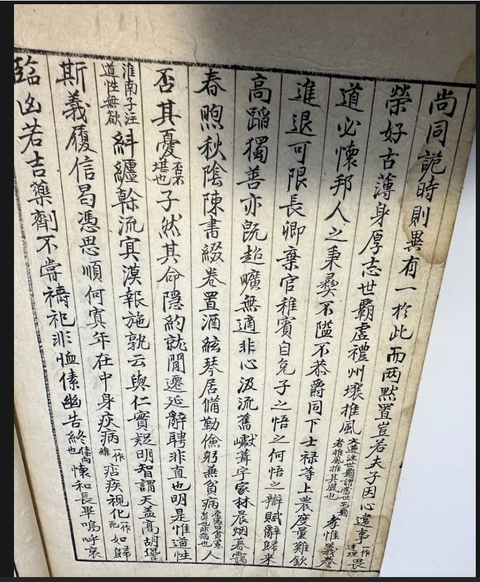 尚同詭時則異有一於此而两黙置豈若夫子因心違事畏
榮好古薄身厚志世霸虛禮州壤推風文選注世霸謂當世而霸者推風推其風也孝惟義養
道必懷邦人之秉彝不隘不恭爵同下士禄等上農度量難鈞
進退可限長卿棄官稚賓自免子之悟之何悟之辯賦辭歸来
高蹈獨善亦既超曠無適非心汲流舊巘葺宇家林晨烟暮靄
春煦秋陰陳書綴卷置酒絃琴居備勤儉躬無貧病人
否其憂否不堪也子然其命隱約就閒遷延辭聘非直也明是惟道性
淮南子注道性無欲糾纆斡流冥漠報施孰云與仁實疑明智謂天盖高胡諐
斯義履信曷憑思順何寘年在中身疢病作維痁疾視化作死如歸
臨凶若吉藥劑不嘗禱祀非恤傃幽告終懷和長畢嗚呼哀